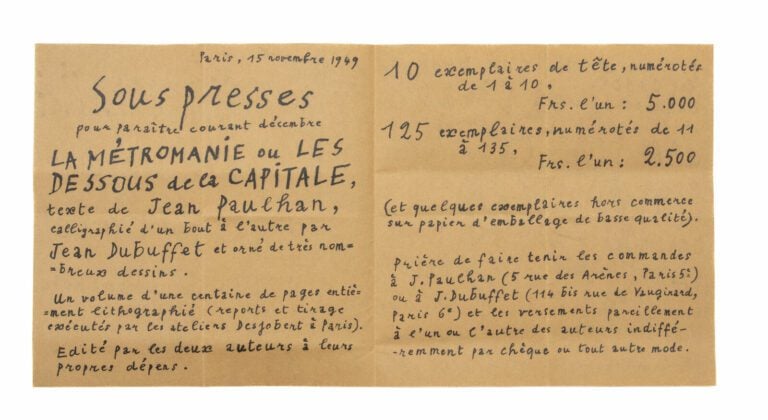 Paris, 15 novembre 1949
Sous presses
pour paraître courant décembre
LA MÉTROMANIE ou LES
DESSOUS de la CAPITALE,
texte de Jean Paulhan,
calligraphié d'un bout à l'autre par
Jean Dubuffet et orné de très nom=
=breux dessins.
Un volume d'une centaine de pages entiè=
=ment lithographié (reports et tirage
exécutés par les ateliers Desjobert à Paris).
Edité par les deux auteurs à leurs
propres dépens.
10 exemplaires de tête, numérotés
de 1 à 10,
Frs. l'un : 5.000
125 exemplaires, numérotés de 11
à 135,
Frs. l'un : 2.500
(et quelques exemplaires hors commerce
sur papier d'emballage de basse qualité).
Prière de faire tenir les commandes
à J. Paulhan (5 rue des Arènes, Paris 5e)
ou à J. Dubuffet (114 bis rue de Vaugirard,
Paris 6e) et les versements pareillement
à l'un ou l'autre des auteurs indiffé-
-remment par chèque ou tout autre mode.